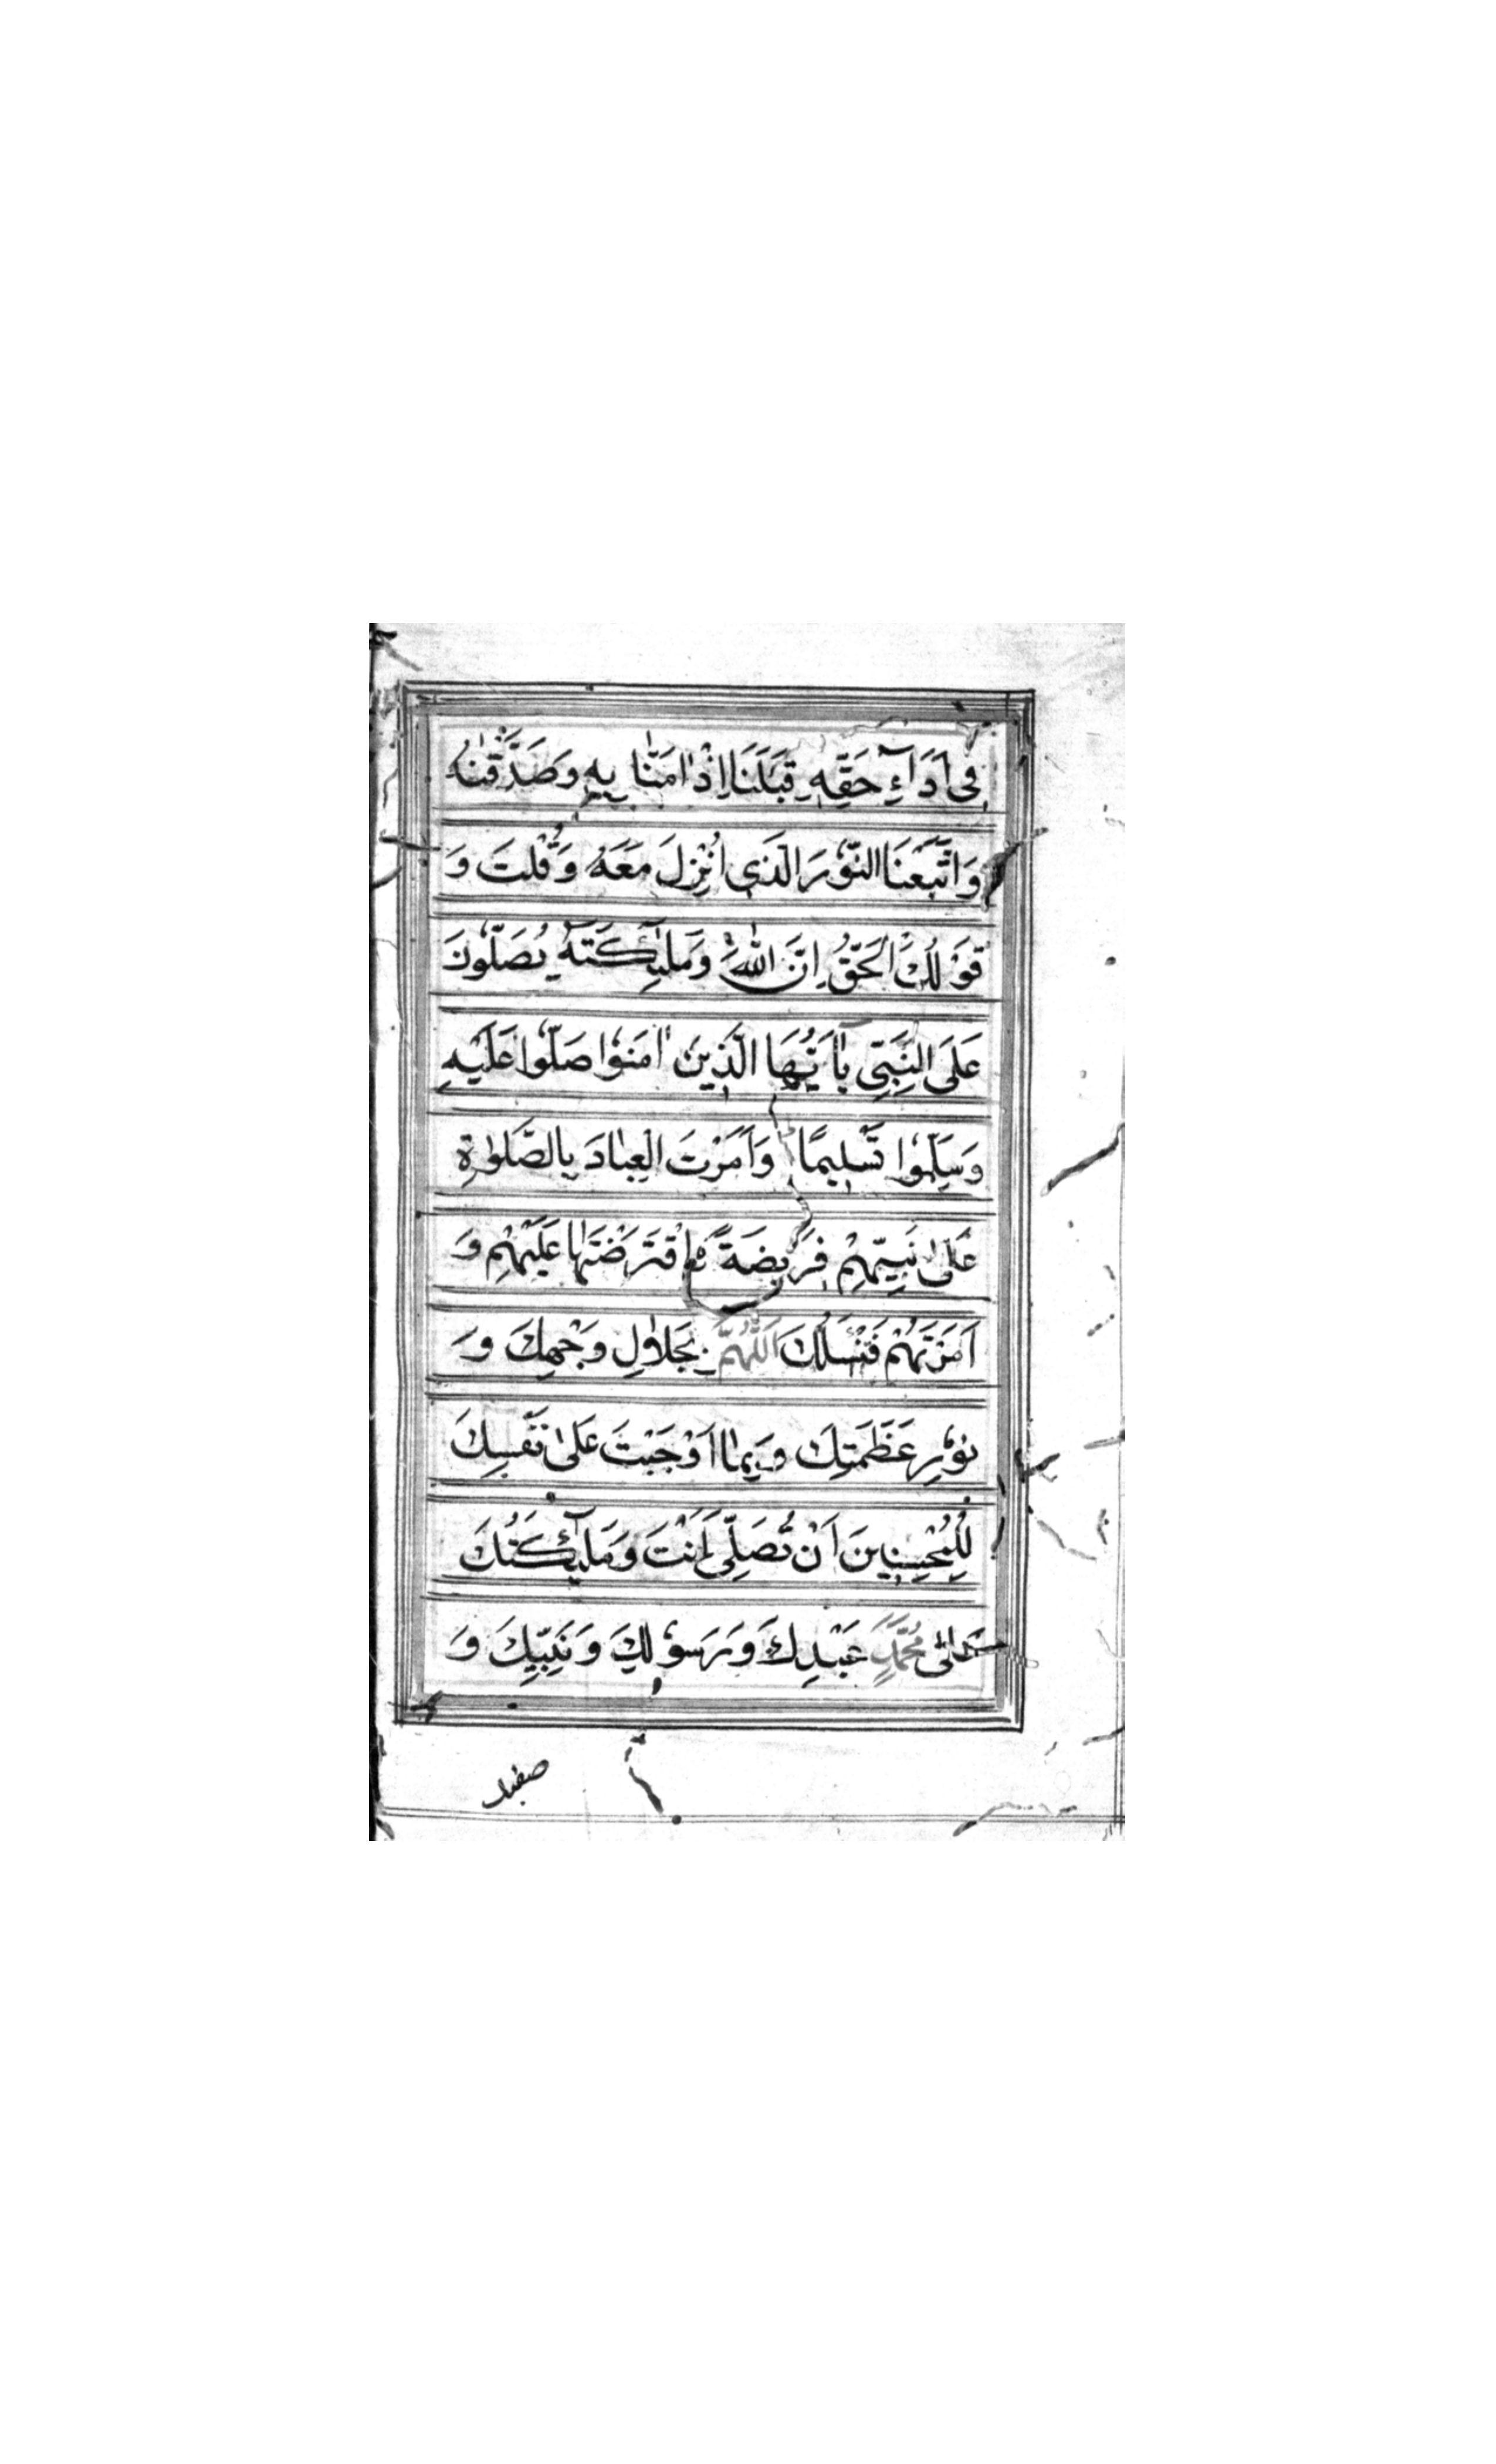 فِى اَدَآءِ حَقِّهِ قِبَلَنَا اِذْ اٰمَنَّا بِهٖ وَصَدَّقْنٰهُ
وَاتَّبَعْنَا النُّوْرَ الَّذِى اُنْزِلَ مَعَهٗ وَقُلْتَ وَ
قَوْلُكَ الْحَقُّ اِنَّ اللّٰهَ وَمَلٰٓئِكَتَهٗ يُصَلُّوْنَ
عَلَى النَّبِىِّ يٰٓاَيُّهَا الَّذِيْنَ اٰمَنُوْا صَلُّوْا عَلَيْهِ
وَسَلِّمُوْا تَسْلِيْمًا وَاَمَرْتَ الْعِبَادَ بِالصَّلٰوةِ
عَلٰى نَبِيِّهِمْ فَرِيْضَةً افْتَرَضْتَهَا عَلَيْهِمْ وَ
اَمَرْتَهُمْ فَنَسْئَلُكَ اَللّٰهُمَّ بِجَلَالِ وَجْهِكَ وَ
نُوْرِ عَظَمَتِكَ وَبِمَا اَوْجَبْتَ عَلٰى نَفْسِكَ
لِلْمُحْسِنِيْنَ اَنْ تُصَلِّىَ اَنْتَ وَمَلٰٓئِكَتُكَ
عَلٰى مُحَمَّدٍ عَبْدِكَ وَرَسُوْلِكَ وَنَبِيِّكَ وَ
صفيك